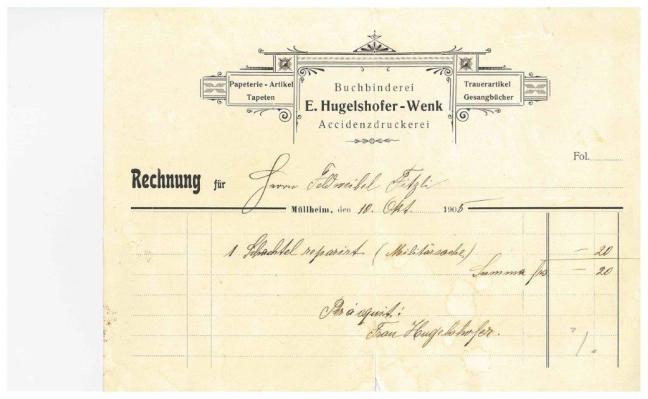 Buchbinderei
Papeterie - Artikel
Tapeten
E. Hugelshofer - Wenk
Trauerartikel
Gesangbücher
Accidenzdruckerei
Fol.
Rechnung für Herrn Feldweibel Fitzli
Müllheim, den 10. Okt. 1905
1 Schachtel reparirt (Militärsache) — 20
Summa frs — 20
Per acquit:
Frau Hugelshofer.